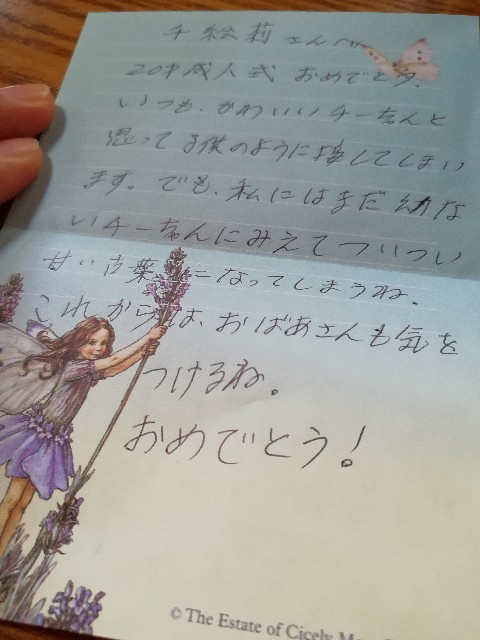 チ絵莉さんへ
20才成人式 おめでとう。
いつも、かわいいチーちゃんと
思って子供のように接してしまい
ます。でも、私にはまだ幼な
いチーちゃんにみえてついつい
甘い言葉になってしまうね。
これからは、おばあさんも気を
つけるね。
おめでとう!
© The Estate of Cicely